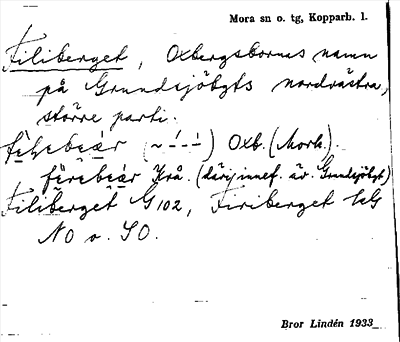 Mora sn o. tg, Kopparb. l.
Filiberget, Oxbergsbornas namn
på Grundsjöbgts nordvästra,
större parti.
Oxb. (Morh.).
Krå. (därjinnef. äv. Grundsjöbgt)
Filiberget G 102, Firiberget
NO o. SO.
Bror Lindén 1933